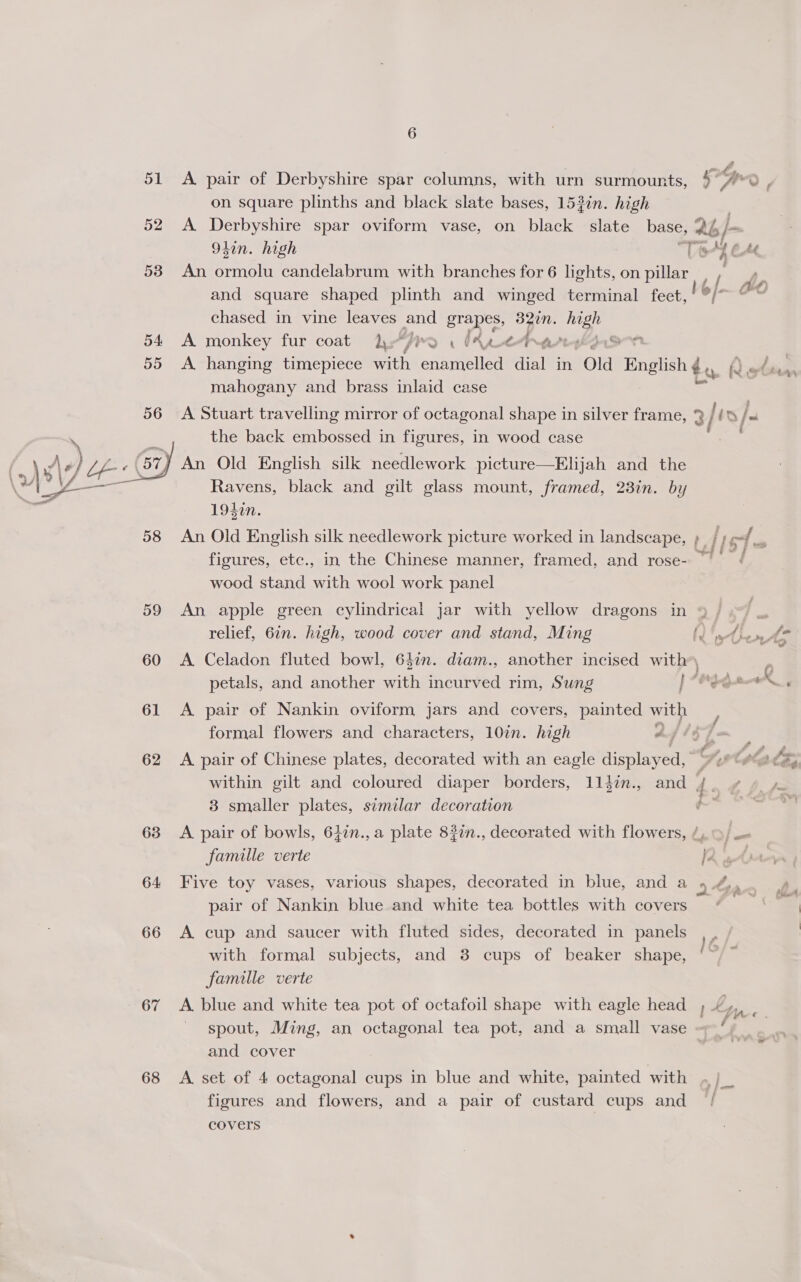 6
51 A pair of Derbyshire spar columns, with urn surmounts,
on square plinths and black slate bases, 15¾in. high
52 A Derbyshire spar oviform vase, on black slate base,
9½in. high
53 An ormolu candelabrum with branches for 6 lights, on pillar
and square shaped plinth and winged terminal feet,
chased in vine leaves and grapes, 32in. high
54 A monkey fur coat
55 A hanging timepiece with enamelled dial in Old English
mahogany and brass inlaid case
56 A Stuart travelling mirror of octagonal shape in silver frame,
the back embossed in figures, in wood case
57 An Old English silk needlework picture—Elijah and the
Ravens, black and gilt glass mount, framed, 23in. by
19½in.
58 An Old English silk needlework picture worked in landscape,
figures, etc., in the Chinese manner, framed, and rose-
wood stand with wool work panel
59 An apple green cylindrical jar with yellow dragons in
relief, 6in. high, wood cover and stand, Ming
60 A Celadon fluted bowl, 6½in. diam., another incised with
petals, and another with incurved rim, Sung
61 A pair of Nankin oviform jars and covers, painted with
formal flowers and characters, 10in. high
62 A pair of Chinese plates, decorated with an eagle displayed,
within gilt and coloured diaper borders, 11½in., and
3 smaller plates, similar decoration
63 A pair of bowls, 6½in., a plate 8¾in., decorated with flowers,
famille verte
64 Five toy vases, various shapes, decorated in blue, and a
pair of Nankin blue and white tea bottles with covers
66 A cup and saucer with fluted sides, decorated in panels
with formal subjects, and 3 cups of beaker shape,
famille verte
67 A blue and white tea pot of octafoil shape with eagle head
spout, Ming, an octagonal tea pot, and a small vase
and cover
68 A set of 4 octagonal cups in blue and white, painted with
figures and flowers, and a pair of custard cups and
covers